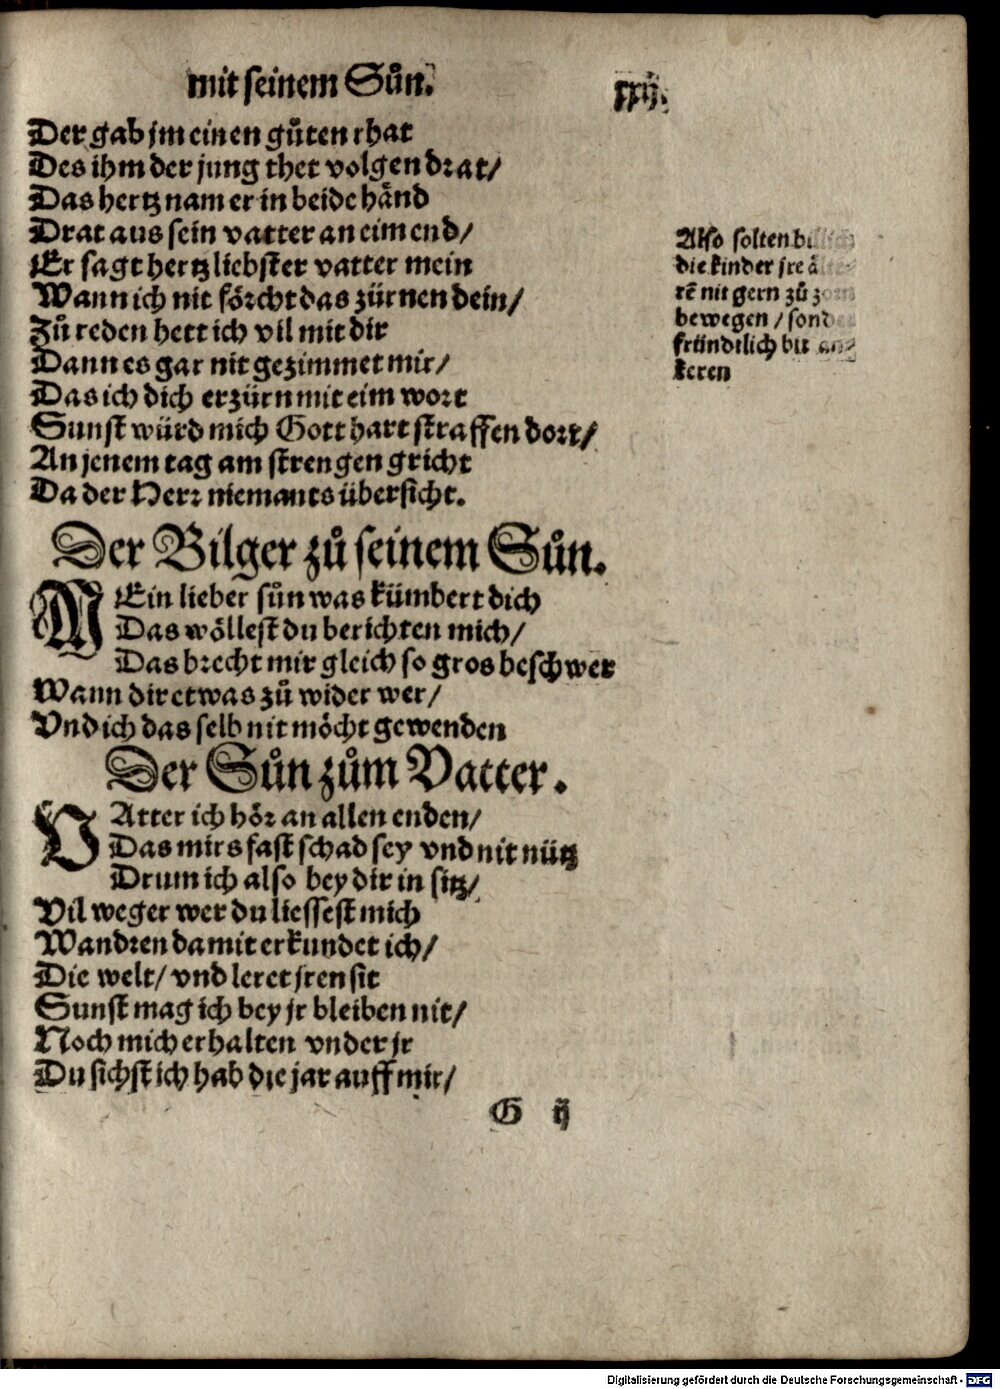 mit seinem Sůn. xxij.
Der gab jm einen gůten rhat
Des ihm der jung thet volgen drat/
Das hertz nam er in beide händ
Drat aus sein vatter an eim end/
Er sagt hertzliebster vatter mein
Wann ich nit förcht das zürnen dein/
Zů reden hett ich vil mit dir
Dann es gar nit gezimmet mir/
Das ich dich erzürn mit eim wort
Sunst würd mich Gott hart straffen dort/
An jenem tag am strengen gricht
Da der Herr niemants übersicht.
Also solten
die kinder jre
rē nit gern zů
bewegen / sonder
früntlich bit
keren
Der Bilger zů seinem Sůn.
MEin lieber sůn was kümbert dich
Das wöllest du berichten mich/
Das brecht mir gleich so gros beschwer
Wann dir etwas zů wider wer/
Vnd ich das selb nit möcht gewenden
Der Sůn zům Vatter.
VAtter ich hör an allen enden/
Das mirs fast schad sey vnd nit nütz
Drum ich also bey dir in sitz/
Vil weger wer du liessest mich
Wandren damit erkundet ich/
Die welt/ vnd leret jren sit
Sunst mag ich bey jr bleiben nit/
Noch mich erhalten vnder jr
Du sichst ich hab die jar auff mir/
G ij
Digitalisierung gefördert durch die Deutsche Forschungsgemeinschaft - DFG